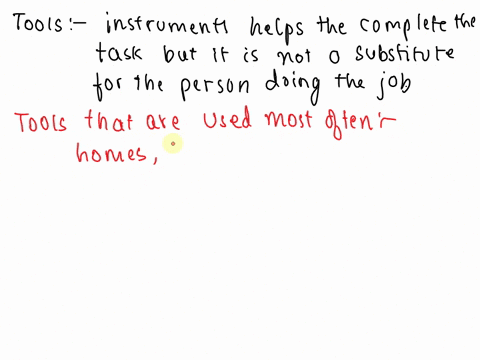 Tools:- instruments helps the complete the
task but it is not a substitute
for the person doing the job
Tools that are used most often:-
homes,